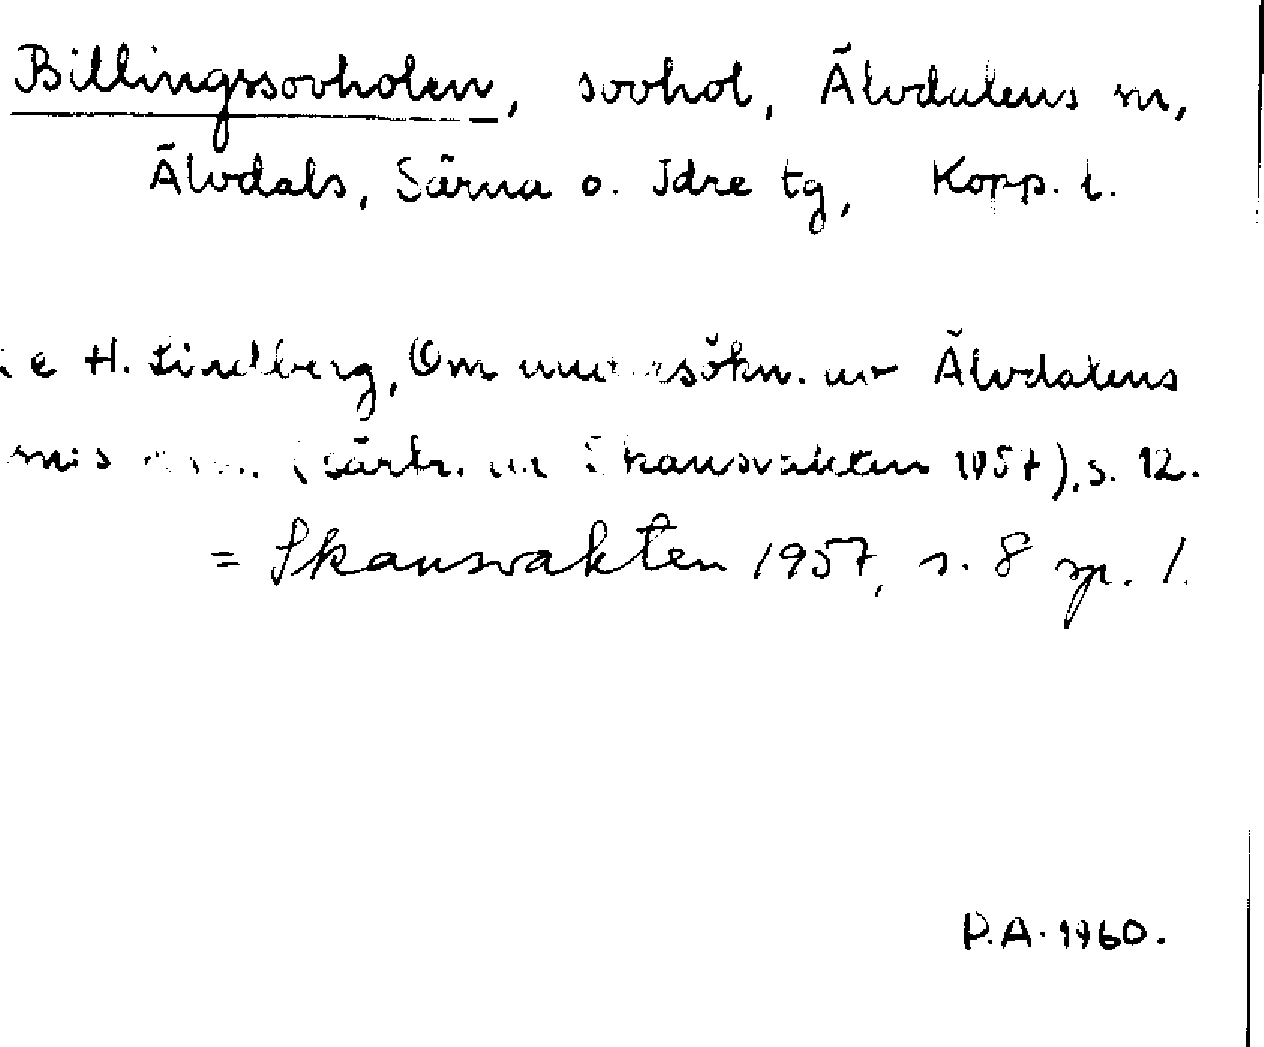 Billingssovholen, sovhol, Älvdalens sn,
Älvdals, Särna o. Idre tg, Kopp. l.
H. Lindberg, Om undersökn. av Älvdalens
(särtr. ur Skansvakten 1957), s. 12.
= Skansvakten 1957, s. 8 sp. 1.
D.A. 1960.